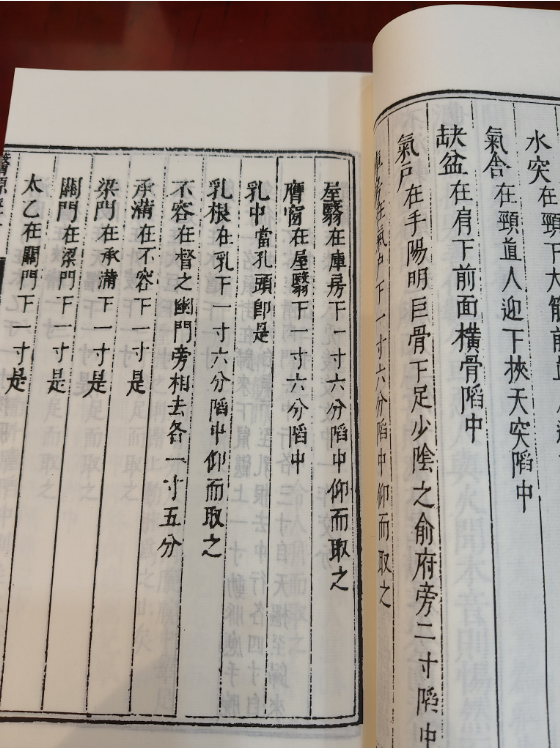 水突在頸下大筋前直
氣舍在頸直人迎下挾天突陷中
缺盆在肩下前面橫骨陷中
氣户在手陽明巨骨下足少陰之俞府旁二寸陷中
房在氣户下一寸六分陷中仰而取之
屋翳在庫房下一寸六分陷中仰而取之
膺窗在屋翳下一寸六分陷中
乳中當乳頭即是
乳根在乳下一寸六分陷中仰而取之
不容在督之幽門旁相去各一寸五分
承滿在不容下一寸是
梁門在承滿下一寸是
關門在梁門下一寸是
太乙在關門下一寸是